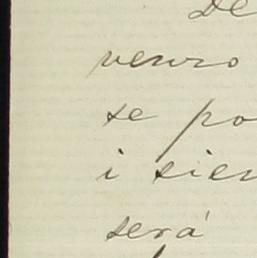 De
venzo
se po
i sien
será